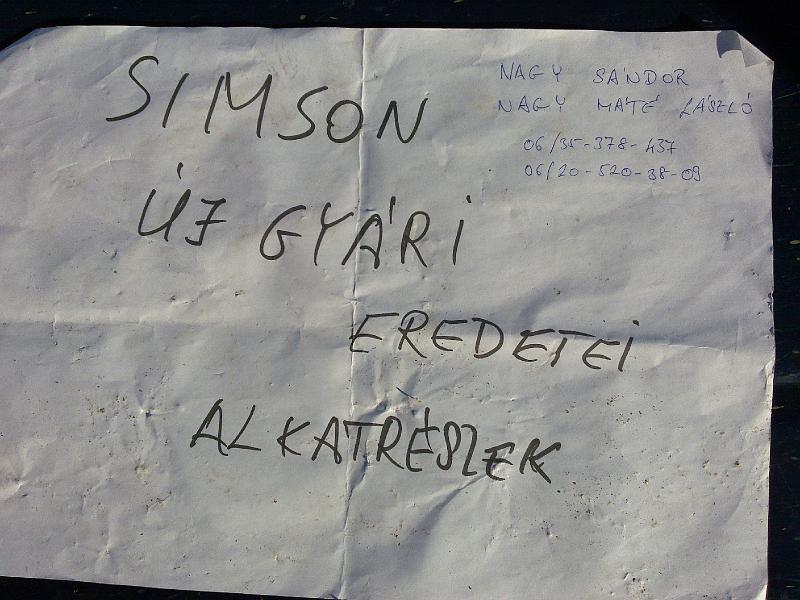 SIMSON
ÚJ GYÁRI
EREDETEI
ALKATRÉSZEK
NAGY SÁNDOR
NAGY MÁTÉ LÁSZLÓ
06/35-378-437
06/20-520-38-09